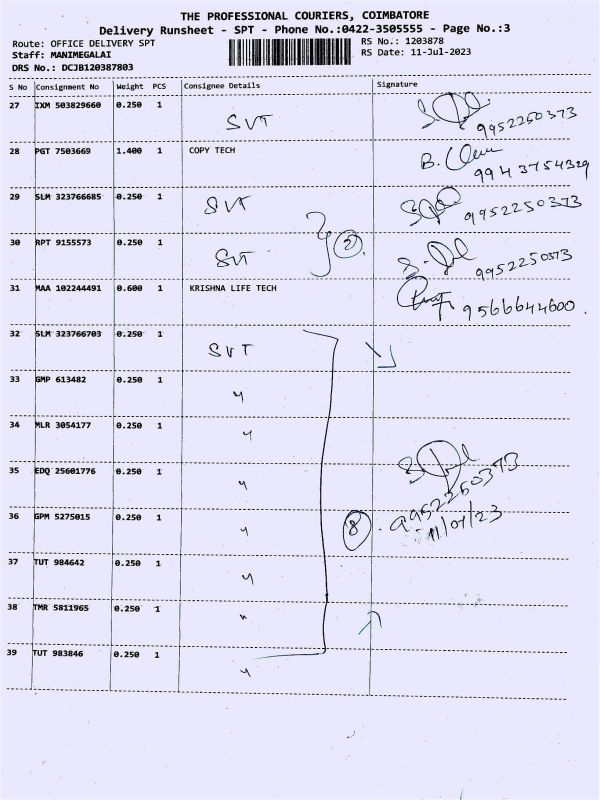 THE PROFESSIONAL COURIERS, COIMBATORE
Delivery Runsheet - SPT - Phone No.:0422-3505555 - Page No.:3
Route: OFFICE DELIVERY SPT
RS No.: 1203878
Staff: MANIMEGALAI
RS Date: 11-Jul-2023
DRS No.: DCJB120387803
S No Consignment No Weight PCS Consignee Details Signature
27 IXM 503829660 0.250 1
SVT
9952250373
28 PGT 7503669 1.400 1 COPY TECH
9943754329
29 SLM 323766685 0.250 1
SVT
9952250373
30 RPT 9155573 0.250 1
SVT
2
9952250373
31 MAA 102244491 0.600 1 KRISHNA LIFE TECH
9566644600.
32 SLM 323766703 0.250 1
SVT
33 GMP 613482 0.250 1
"
34 MLR 3054177 0.250 1
"
35 EDQ 25601776 0.250 1
"
9952250373
36 GPM 5275015 0.250 1
"
8
11/07/23
37 TUT 984642 0.250 1
"
38 TMR 5811965 0.250 1
"
39 TUT 983846 0.250 1
"